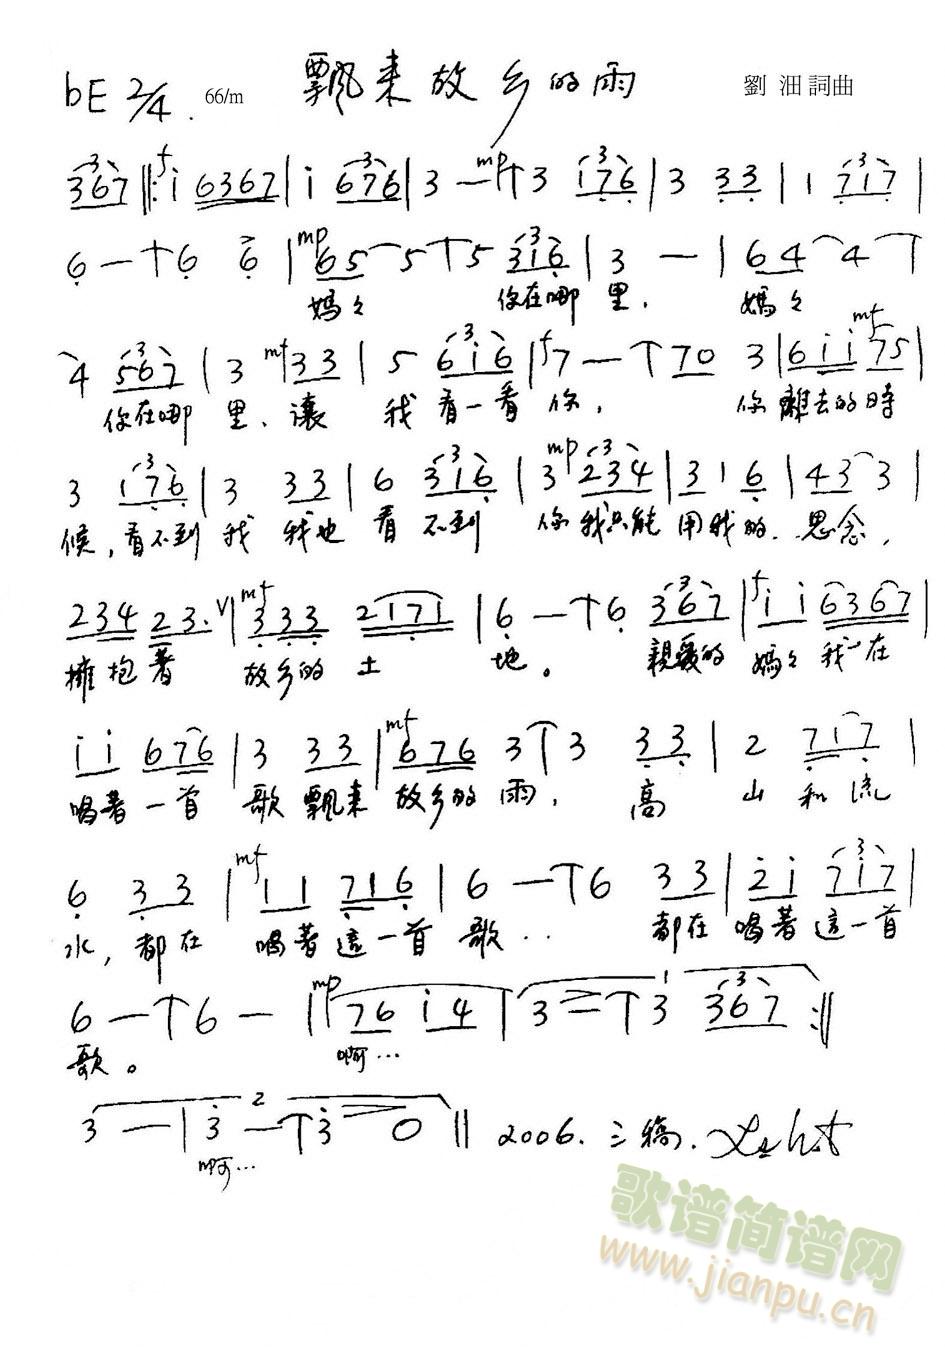 bE 2/4. 66/m 飄来故乡的雨 劉沺詞曲
3 6 7 ‖: i 6 3 6 7 | i 6 7 6 | 3 — ↑3 1 7 6 | 3 3 3 | 1 7 1 7 |
6 — ↑6 6 | 6 5 5 ↑5 3 1 6 | 3 — | 6 4 4 ↑
媽々 你在哪里. 媽々
4 5 6 7 | 3 3 3 | 5 6 i 6 | 7 — ↑7 0 3 | 6 i i 7 5 |
你在哪里、讓我看一看你, 你離去的時
3 1 7 6 | 3 3 3 | 6 3 1 6 | 3 2 3 4 | 3 1 6 | 4 3 3 |
候,看不到我我也看不到你我只能用我的.思念,
2 3 4 2 3. V | 3 3 3 2 1 7 1 | 6 — ↑6 3 6 7 | i i 6 3 6 7 |
擁抱著 故乡的土地。 親愛的媽々我一在
i i 6 7 6 | 3 3 3 | 6 7 6 3 ↑3 3 3 | 2 7 1 7 |
唱著一首歌飄来故乡的雨, 高山和流
6 3 3 | 1 1 7 1 6 | 6 — ↑6 3 3 | 2 i 7 i 7 |
水,都在唱著這一首歌.. 都在唱著這一首
6 — ↑6 — | 7 6 i 4 | 3 — ↑3 3 6 7 :‖
歌。 啊…
3 — | 3 — ↑3 0 ‖ 2006.三稿.
啊…
歌谱简谱网
www.jianpu.cn